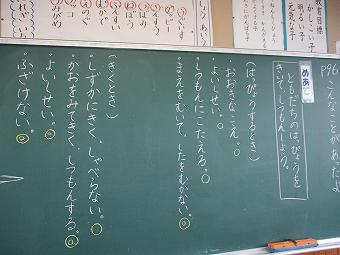 P96 こんなことが、あったよ
めあて
ともだちのはっぴょうを
きいて、しつもんしよう。
(はっぴょうするとき)
・おおきなこえ。
・よいしせい。
・しつもんにこたえる。
・まえをむいて、したをむかない。
(きくとき)
・しずかにきく、しゃべらない。
・かおをみてきく、しつもんする。
・よいしせい。
・ふざけない。
教育目標
かしこい子
明るい子
元気な子